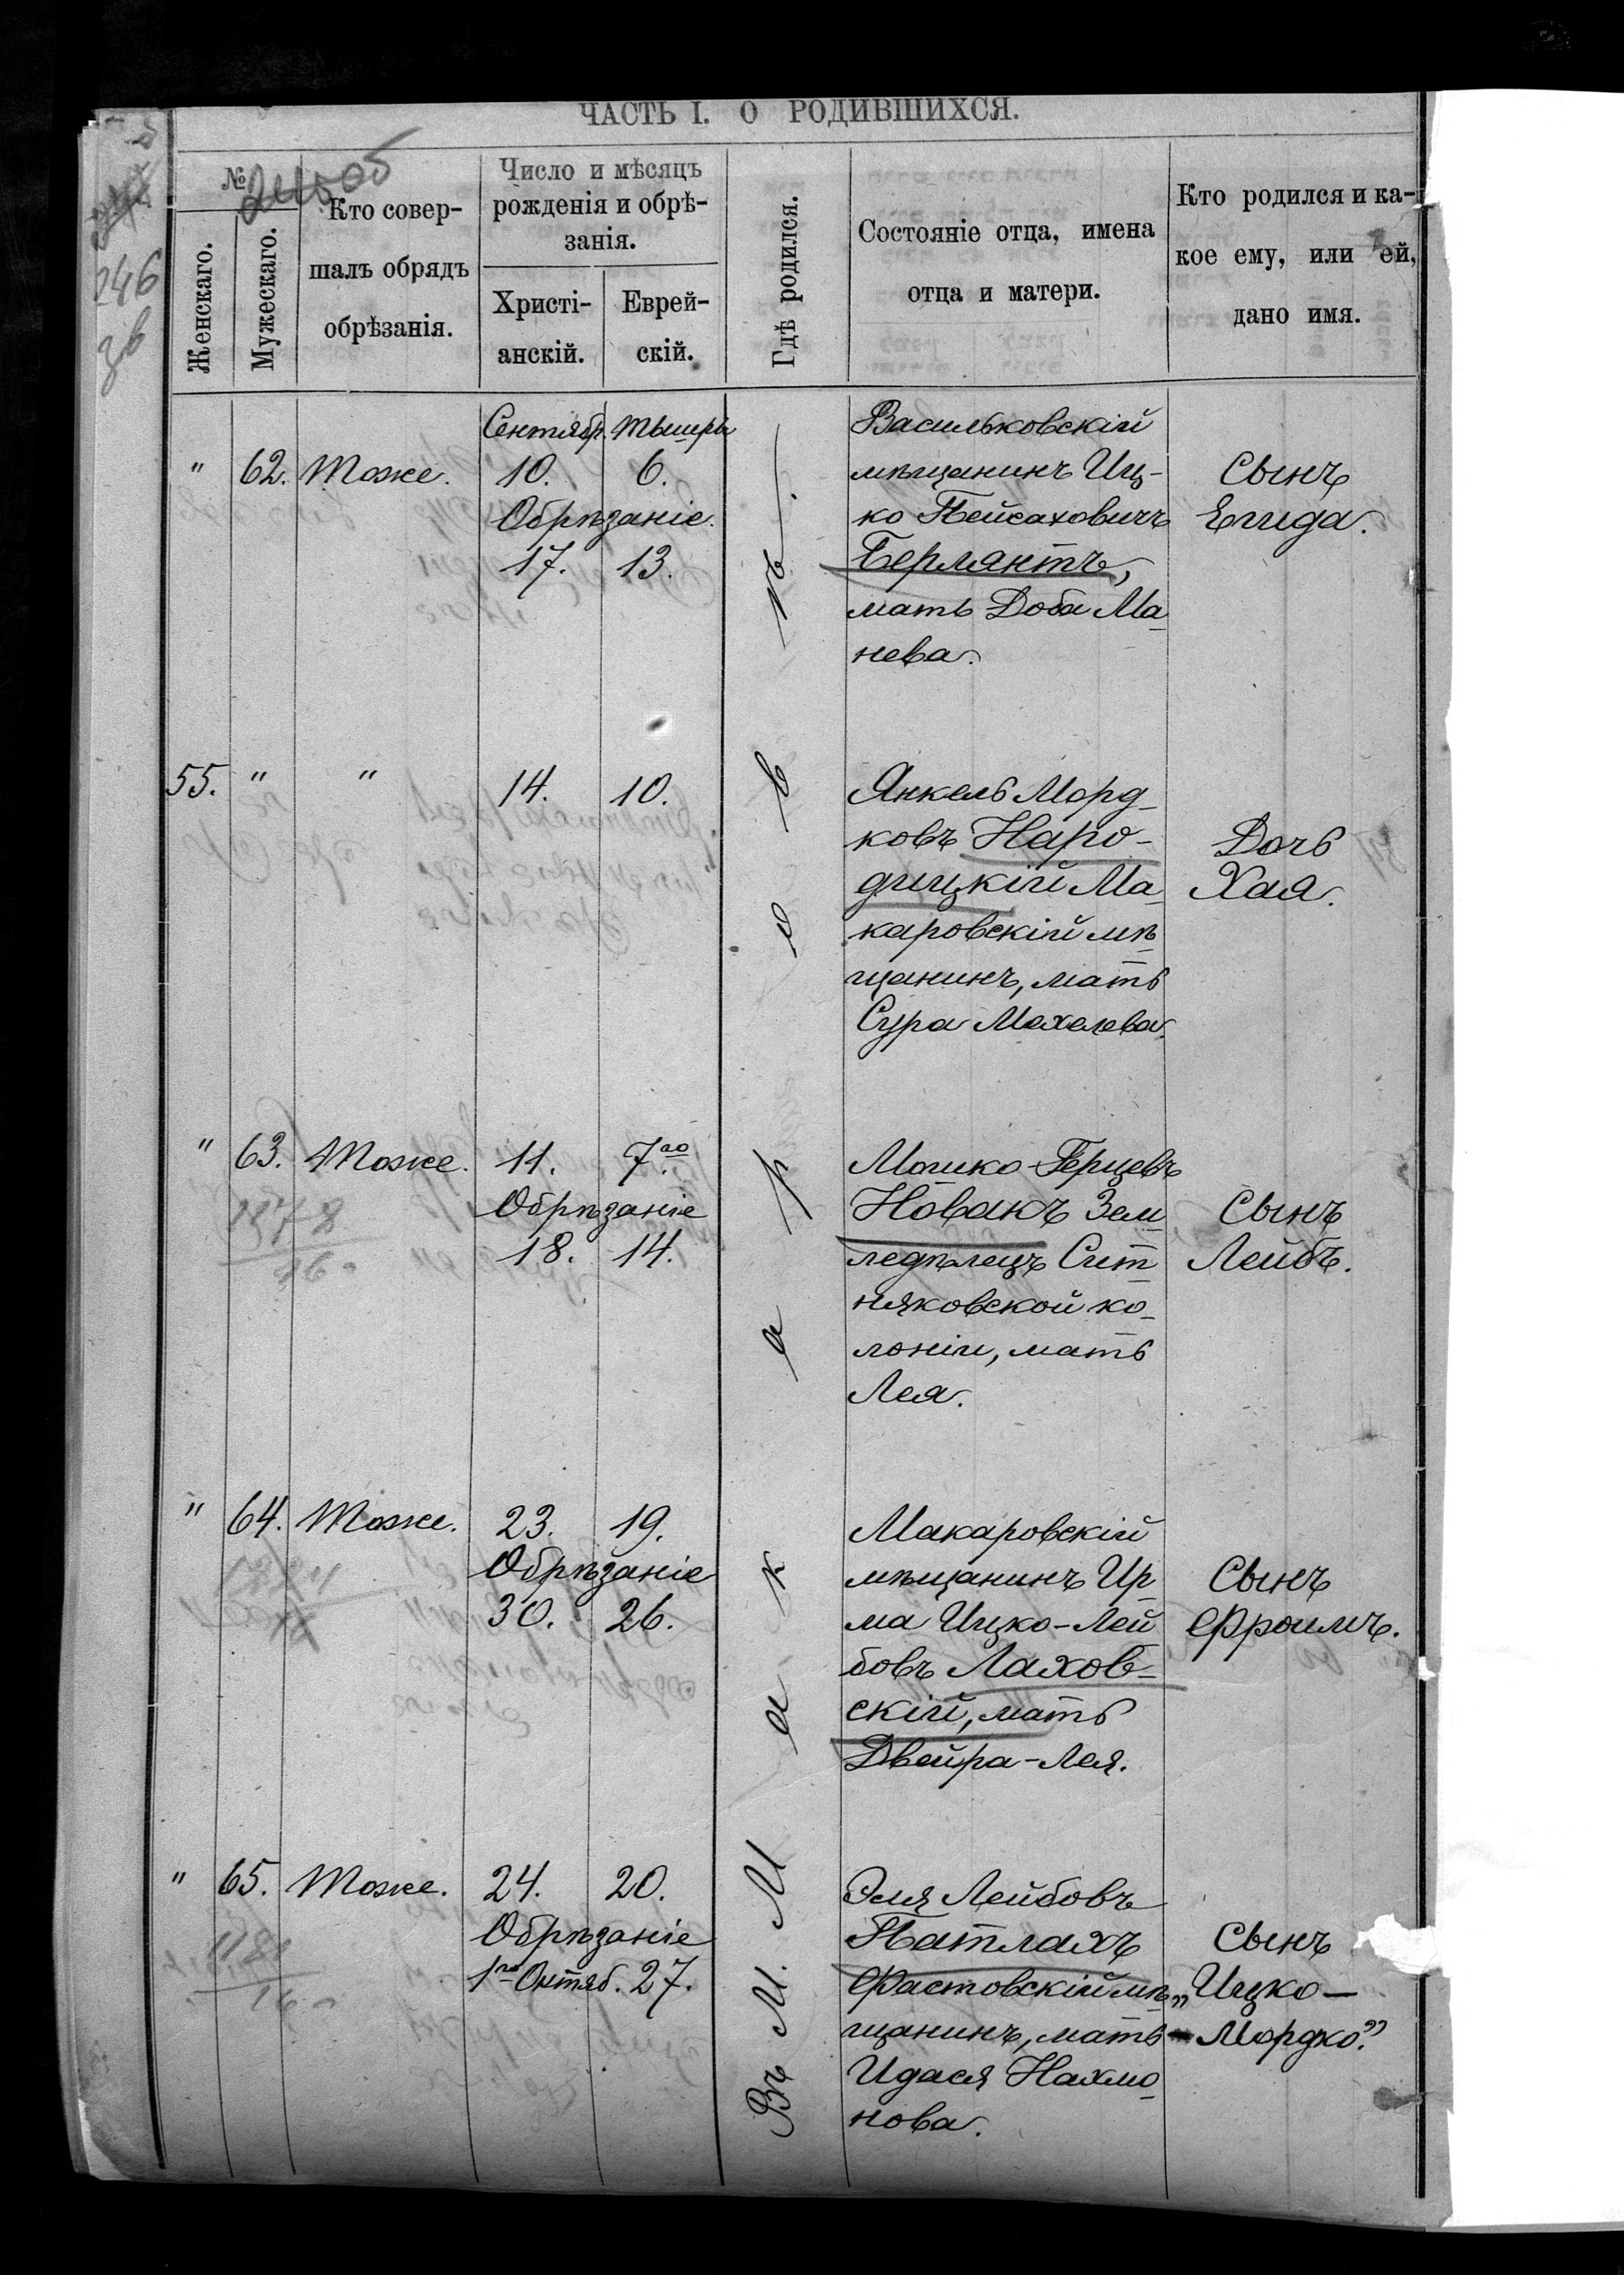 ЧАСТЬ I. О РОДИВШИХСЯ.
№
Женскаго.
Мужескаго.
Кто совер-
шалъ обрядъ
обрѣзанія.
Число и мѣсяцъ
рожденія и обрѣ-
занія.
Христі-
анскій.
Еврей-
скій.
Гдѣ родился.
Состояніе отца, имена
отца и матери.
Кто родился и ка-
кое ему, или ей,
дано имя.
246
Въ М. Макаровѣ
Сентябр. Тышры
" 62. Тоже. 10. 6.
Обрѣзаніе.
17. 13.
Васильковскій
мѣщанинъ Иц-
ко Пейсаховичъ
Берлянтъ,
мать Доба Ма
нева.
Сынъ
55. " " 14. 10.
Янкель Морд-
ковъ Наро-
дицкій Ма
каровскій мѣ
щанинъ, мать
Сура Мехелева.
Дочь
Хая.
" 63. Тоже. 11. 7го
Обрѣзаніе
18. 14.
Мошко Герцевъ
Новакъ Зем
ледѣлецъ Сит
няковской ко-
лоніи, мать
Лея.
Сынъ
Лейбъ.
" 64. Тоже. 23. 19.
Обрѣзаніе
30. 26.
Макаровскій
мѣщанинъ Ир
ма Ицко-Лей
бовъ Лахов-
скій, мать
Двейра-Лея.
Сынъ
Фроимъ.
" 65. Тоже. 24. 20.
Обрѣзаніе
1го Октяб. 27.
Эля Лейбовъ
Патлахъ
Фастовскій мѣ
щанинъ, мать
Идася Нахмо
нова.
Сынъ
„Ицко-
Мордко."